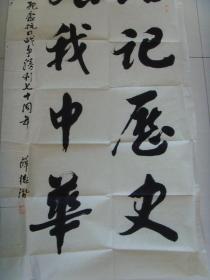 记歷史
我中華
纪念抗日战争胜利七十周年